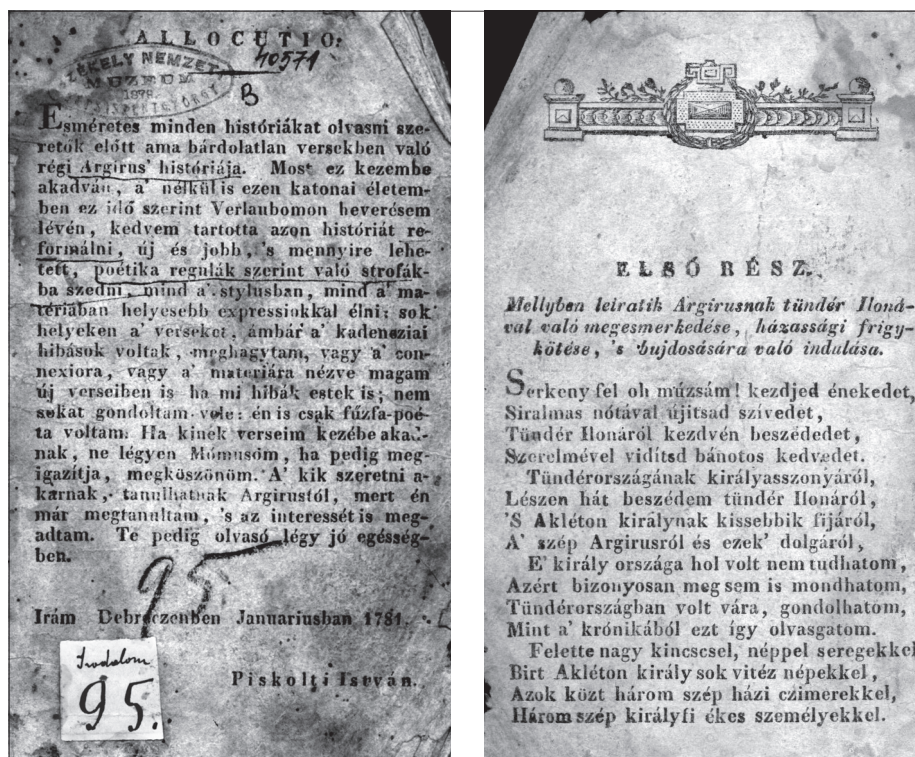 ALLOCUTIO.
40571
SZÉKELY NEMZETI
MUZEUM
1879.
B
Esméretes minden históriákat olvasni sze-
retők előtt ama bárdolatlan versekben való
régi Argirus' históriája. Most ez kezembe
akadván, a' nélkül is ezen katonai életem-
ben ez idő szerint Verlaubomon heverésem
lévén, kedvem tartotta azon históriát re-
formálni, új és jobb, 's mennyire lehe-
tett, poétika regulák szerint való strofák-
ba szedni, mind a' stylusban, mind a' ma-
tériában helyesebb expressiokkal élni: sok
helyeken a' verseket, ámbár a' kadencziai
hibások voltak, meghagytam, vagy a' con-
nexiora, vagy a' materiára nézve magam
új verseiben is ha mi hibák estek is; nem
sokat gondoltam vele: én is csak fűzfa-poé-
ta voltam. Ha kinek verseim kezébe akad-
nak, ne légyen Mómusom, ha pedig meg-
igazítja, megköszönöm. A' kik szeretni a-
karnak, tanulhatnak Argirustól, mert én
már megtanultam, 's az interessét is meg-
adtam. Te pedig olvasó légy jó egésség-
ben.
95
Irám Debreczenben Januariusban 1781.
Irodalom
95.
Piskolti István.
ELSŐ RÉSZ.
Mellyben leiratik Argirusnak tündér Iloná-
val való megesmerkedése, házassági frigy-
kötése, 's bujdosására való indulása.
Serkeny fel oh múzsám! kezdjed énekedet,
Siralmas nótával újitsad szívedet,
Tündér Ilonáról kezdvén beszédedet,
Szerelmével vidítsd bánotos kedvedet.
Tündérországának királyasszonyáról,
Lészen hát beszédem tündér Ilonáról,
'S Akléton királynak kissebbik fijáról,
A' szép Argirusról és ezek' dolgáról,
E' király országa hol volt nem tudhatom,
Azért bizonyosan meg sem is mondhatom,
Tündérországban volt vára, gondolhatom,
Mint a' krónikából ezt így olvasgatom.
Felette nagy kincscsel, néppel seregekkel
Birt Akléton király sok vitéz népekkel,
Azok közt három szép házi czimerekkel,
Három szép királyfi ékes személyekkel.